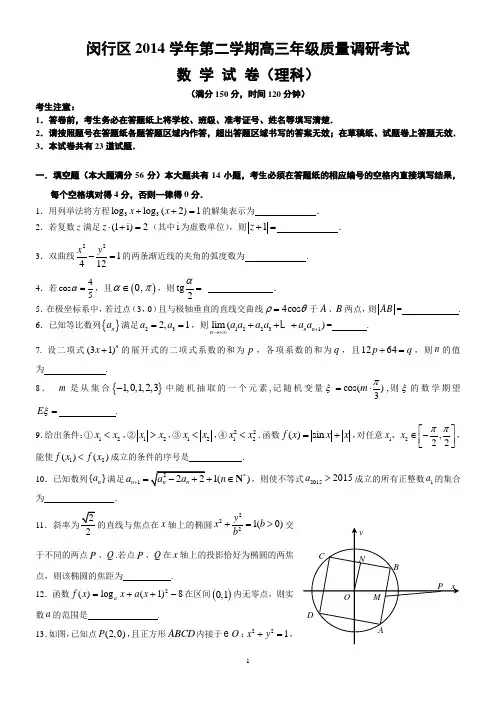 闵行区 2014 学年第二学期高三年级质量调研考试
数 学 试 卷（理科）
（满分 150 分，时间 120 分钟）
考生注意：
1．答卷前，考生务必在答题纸上将学校、班级、准考证号、姓名等填写清楚．
2．请按照题号在答题纸各题答题区域内作答，超出答题区域书写的答案无效；在草稿纸、试题卷上答题无效．
3．本试卷共有 23 道试题．
一．填空题（本大题满分 56 分）本大题共有 14 小题，考生必须在答题纸的相应编号的空格内直接填写结果，
每个空格填对得 4 分，否则一律得 0 分．
1．用列举法将方程 log₃x + log₃(x+2) = 1 的解集表示为 ．
2．若复数 z 满足 z·(1+i) = 2（其中 i 为虚数单位），则 |z+1| = ．
3．双曲线 x²/4 − y²/12 = 1 的两条渐近线的夹角的弧度数为 ．
4．若 cos α = 4/5，且 α∈(0, π)，则 tg α/2 = ．
5. 在极坐标系中，若过点（3，0）且与极轴垂直的直线交曲线 ρ = 4cosθ 于 A、B 两点，则 |AB| = ．
6．已知等比数列{aₙ}满足 a₂ = 2, a₃ = 1，则 lim(n→+∞)(a₁a₂ + a₂a₃ + L + aₙaₙ₊₁) = ．
7. 设二项式 (3x+1)ⁿ 的展开式的二项式系数的和为 p，各项系数的和为 q，且 12p + 64 = q，则 n 的值
为 ．
8． m 是从集合 {−1,0,1,2,3} 中随机抽取的一个元素,记随机变量 ξ = cos(m·π/3) ,则 ξ 的数学期望
Eξ = ．
9.给出条件：① x₁ < x₂，② |x₁| > x₂，③ x₁ < |x₂|，④ x₁² < x₂²．函数 f(x) = |sin x| + |x|，对任意 x₁、x₂ ∈ [−π/2, π/2]，
能使 f(x₁) < f(x₂) 成立的条件的序号是 ．
10．已知数列{aₙ}满足 aₙ₊₁ = √(aₙ² − 2aₙ + 2) + 1(n∈N*)，则使不等式 a₂₀₁₅ > 2015 成立的所有正整数 a₁ 的集合
为 ．
11．斜率为 √2/2 的直线与焦点在 x 轴上的椭圆 x² + y²/b² = 1(b > 0) 交
于不同的两点 P、Q.若点 P、Q 在 x 轴上的投影恰好为椭圆的两焦
点，则该椭圆的焦距为 ．
12．函数 f(x) = logₐ x + a(x+1)² − 8 在区间 (0,1) 内无零点，则实
数 a 的范围是 ．
13.如图，已知点 P(2,0)，且正方形 ABCD 内接于 e O：x² + y² = 1，
y
C
N
B
P
x
O
M
D
A
1